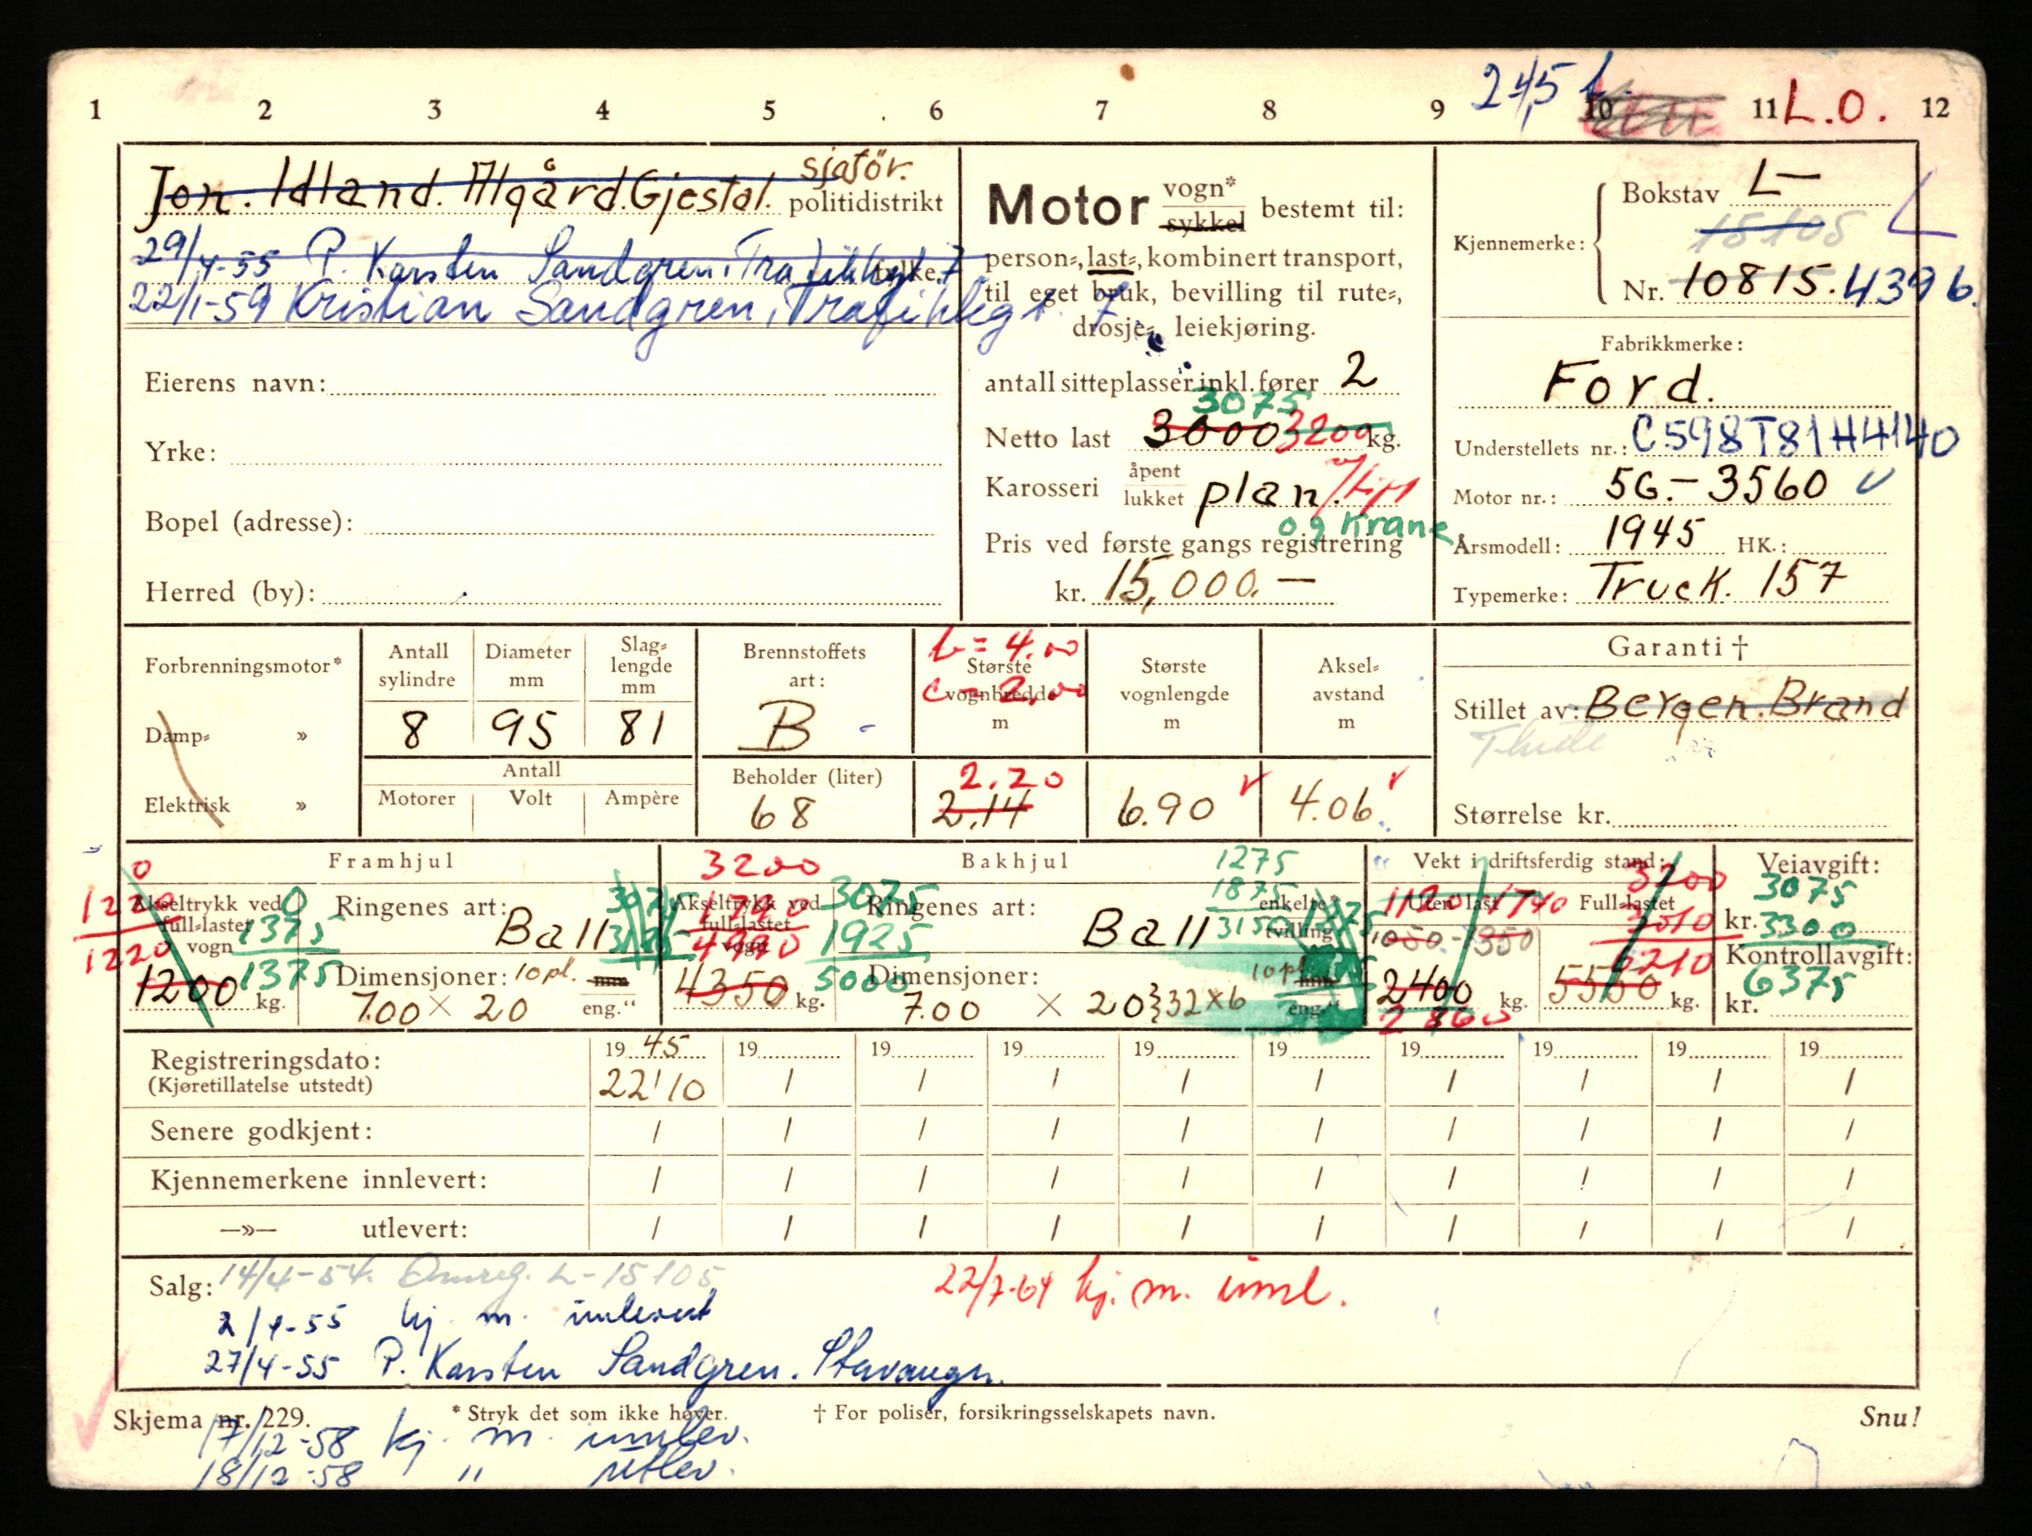 1 2 3 4 5 6 7 8 9 10 11 12
245 L.
L.O.
Jon. Idland. Ålgård. Gjestal. sjafør.
politidistrikt
29/4-55 P. Karsten Sandgren, Trafikkgt 7
22/1-59 Kristian Sandgren, Trafikkgt. 7
Eierens navn:
Yrke:
Bopel (adresse):
Herred (by):
Motor vogn* sykkel bestemt til:
person-, last-, kombinert transport,
til eget bruk, bevilling til rute-,
drosje-, leiekjøring.
antall sitteplasser inkl. fører 2
3075
Netto last 3000 3200 kg.
Karosseri åpent lukket plan. m/tipp
og Krane
Pris ved første gangs registrering
kr. 15,000.—
Kjennemerke: Bokstav L—
15105
Nr. 10815. 4396.
Fabrikkmerke:
Ford.
Understellets nr.: C598T81H4140
Motor nr.: 5G.-3560
Årsmodell: 1945 HK.:
Typemerke: Truck. 157
Forbrenningsmotor*
Damp- »
Elektrisk »
Antall sylindre
Diameter mm
Slag-lengde mm
8 95 81
Antall
Motorer Volt Ampère
Brennstoffets art:
B
Beholder (liter)
68
b = 4.00
Største vognbredde m
c = 2.00
2.20
2.14
Største vognlengde m
6.90
Aksel-avstand m
4.06
Garanti †
Stillet av: Bergen. Brand
Størrelse kr.
Framhjul
Akseltrykk ved full-lastet vogn
0
1220
1220
0
1375
1375
1200 kg.
Ringenes art: Ball
3075
Dimensjoner: 10 pl. mm
7.00 × 20 eng."
Bakhjul
3200
Akseltrykk ved full-lastet vogn
1790
4990
4350 kg.
3075
1925
5000
Ringenes art: Ball
1275
1875
3150
enkelte*
tvilling
Dimensjoner: 10 pl. mm
7.00 × 20 } 32 x 6 eng."
Vekt i driftsferdig stand:
Uten last
1120 1740
1050 - 1350
2400 kg.
2860
Full-lastet
3200
3010
6210
5550 kg.
Veiavgift:
3075
kr. 3300
Kontrollavgift:
6375
kr.
Registreringsdato: 19 45 19 19 19 19 19 19 19 19 19
(Kjøretillatelse utstedt) 22/10 / / / / / / / / /
Senere godkjent: / / / / / / / / / /
Kjennemerkene innlevert: / / / / / / / / / /
—»— utlevert: / / / / / / / / / /
Salg: 14/4-54. Omreg. L-15105
22/7-64 kj. m. innl.
2/4-55 kj. m. innlevert
27/4-55 P. Karsten Sandgren. Stavanger.
Skjema nr. 229. * Stryk det som ikke høver. † For poliser, forsikringsselskapets navn. Snu!
17/12-58 kj. m. innlev.
18/12-58 " utlev.